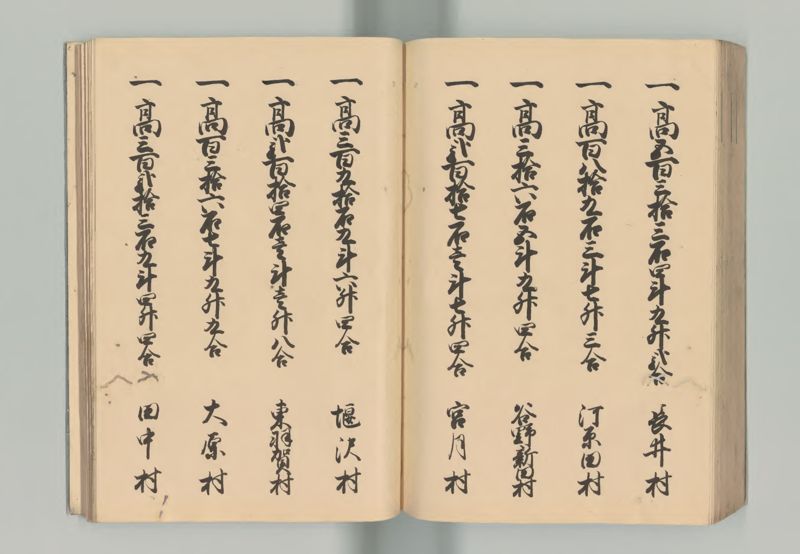 一高五百三拾三石四斗九升弐合 長井村
一高百八拾九石三斗七升三合 河原田村
一高三拾六石五斗九升四合 谷野新田村
一高弐百拾七石壱斗七升四合 宮月村
一高三百九拾石九斗六升四合 堰沢村
一高弐百拾四石壱斗壱升八合 東羽賀村
一高百三拾六石七斗九升九合 大原村
一高三百弐拾三石九斗四升四合 田中村